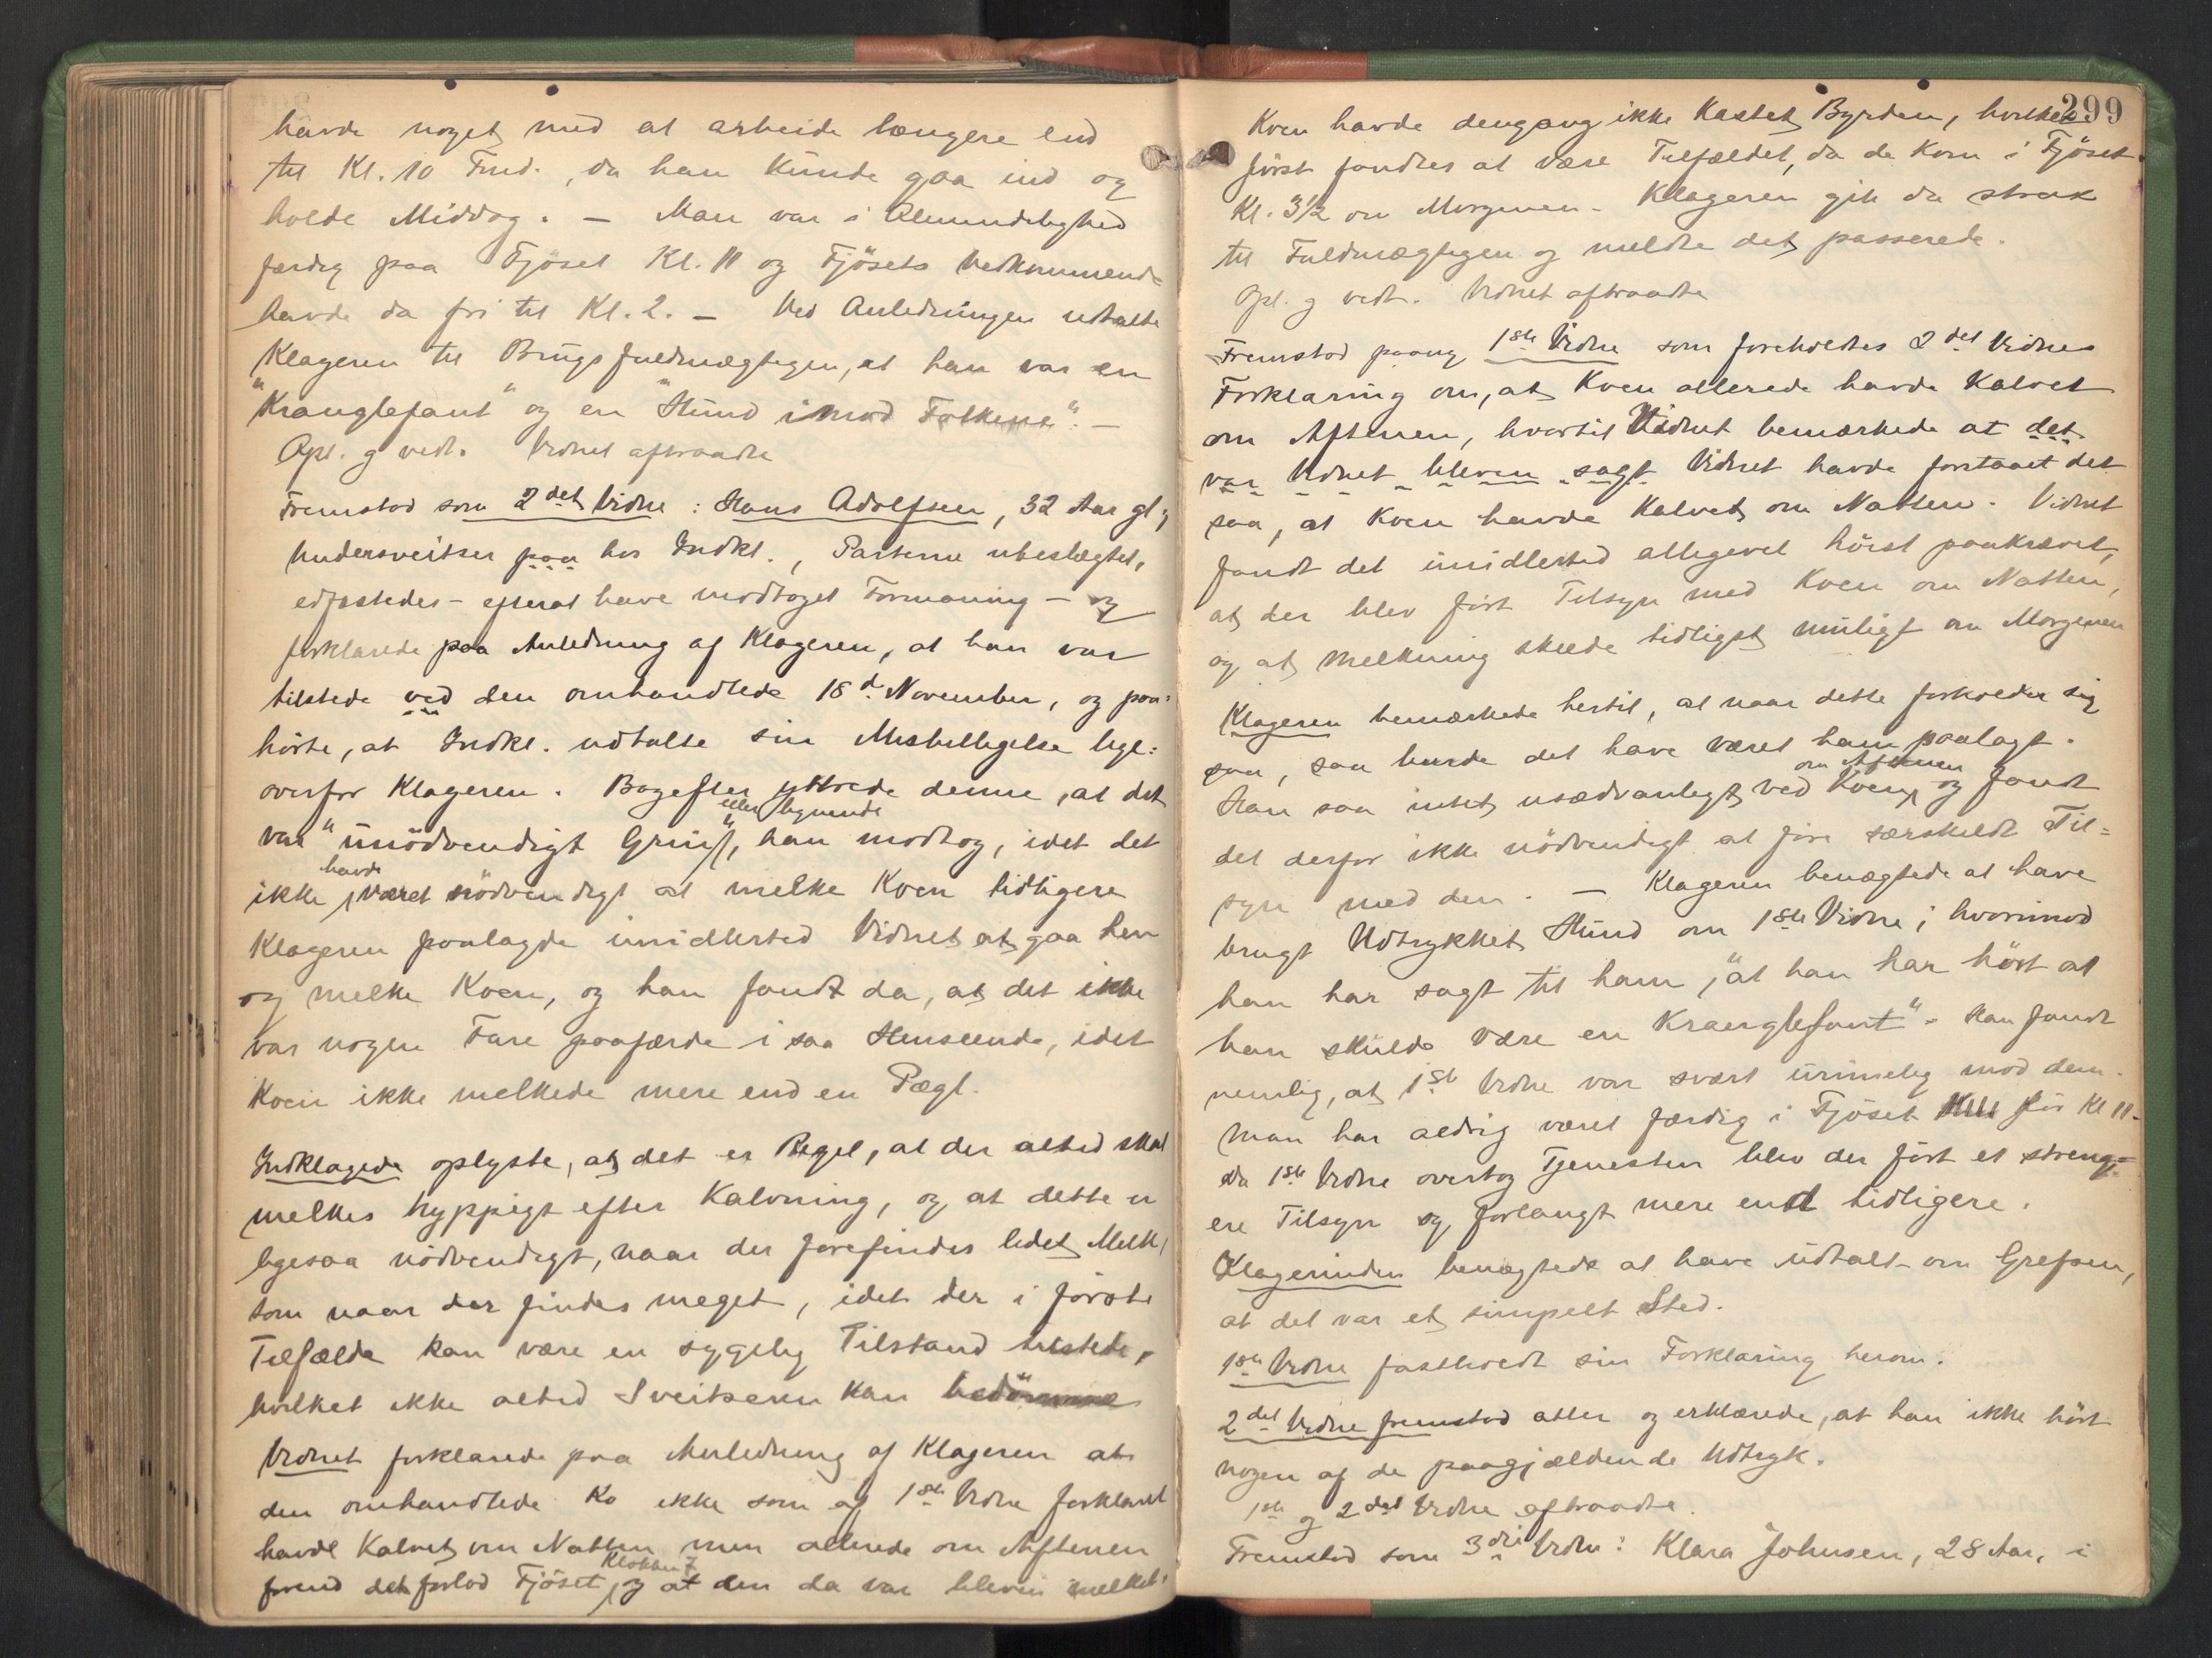 havde noget med at arbeide længere end
til Kl. 10 Fmd., da han kunde gaa ind og
holde Middag. — Man var i Almindelighed
færdig paa Fjöset Kl. 11 og Fjösets Vedkommende
havde da fri til Kl. 2. — Ved Anledningen udtalte
Klageren til Brugsfuldmægtigen, at han var en
"Kranglefant" og en "Hund imod Folkene". —
Opl. og vedt. Vidnet aftraadte
Fremstod som 2det Vidne: Hans Adolfsen, 32 Aar gl.,
Undersveitser paa hos Indkl., Parterne ubeslægtet,
edfæstedes – efterat have modtaget Formaning – og
forklarede paa Anledning af Klageren, at han var
tilstede ved den omhandlede 18d November, og paa=
hörte, at Indkl. udtalte sin Misbilligelse lige=
overfor Klageren. Bagefter yttrede denne, at det
eller lignende
var "unödvendigt Grin", han modtog, idet det
havde
ikke været nödvendigt at melke Koen tidligere
Klageren paalagde imidlertid Vidnet at gaa hen
og melke Koen, og han fandt da, at det ikke
var nogen Fare paafærde i saa Henseende, idet
Koen ikke melkede mere end en Pægl.
Indklagede oplyste, at det er Regel, at der altid skal
melkes hyppigt efter Kalvning, og at dette er
ligesaa nödvendigt, naar der forefindes lidet Melk,
som naar der findes meget, idet der i förste
Tilfælde kan være en sygelig Tilstand tilstede,
hvilket ikke altid Sveitseren kan bedömme
Vidnet forklarede paa Anledning af Klageren at
den omhandlede Ko ikke som af 1ste Vidne forklaret
havde Kalvet om Natten men allerede om Aftenen
Klokken 7
forend det forlod Fjöset, og at den da var bleven melket.
299
Koen havde dengang ikke Kastet Byrden, hvilket
först fandtes at være Tilfældet, da de kom i Fjöset
Kl. 3½ om Morgenen – Klageren gik da strax
til Fuldmægtigen og meldte det passerede.
Opl. og vedt. Vidnet aftraadte
Fremstod paany 1ste Vidne som foreholdtes 2det Vidnes
Forklaring om, at Koen allerede havde Kalvet
om Aftenen, hvortil Vidnet bemærkede at det
var Vidnet bleven sagt Vidnet havde forstaaet det
saa, at Koen havde Kalvet om Natten. Vidnet
fandt det imidlertid alligevel höist paakrævet,
at der blev fört Tilsyn med Koen om Natten,
og at Melkning skeede tidligst muligt om Morgenen
Klageren bemærkede hertil, at naar dette forholder sig
saa, saa burde det have været ham paalagt.
om Aftenen
Han saa intet usædvanligt ved Koen, og fandt
det derfor ikke nödvendigt at före særskildt Til=
syn med den. — Klageren benægtede at have
brugt Udtrykket Hund om 1ste Vidne; hvorimod
han har sagt til ham, "at han har hört at
han skulde være en Kranglefant". Han fandt
nemlig, at 1ste Vidne var svært urimelig mod dem.
Man har aldrig været færdig i Fjöset för Kl 11.
Da 1ste Vidne overtog Tjenesten blev der fört et streng=
ere Tilsyn og forlangt mere end tidligere.
Klagerinden benægtede at have udtalt om Grefsen,
at det var et simpelt Sted.
1ste Vidne fastholdt sin Forklaring herom.
2det Vidne fremstod atter og erklærede, at han ikke hört
nogen af de paagjældende Udtryk.
1ste og 2det Vidne aftraadte.
Fremstod som 3die Vidne: Klara Johnsen, 28 Aar, i